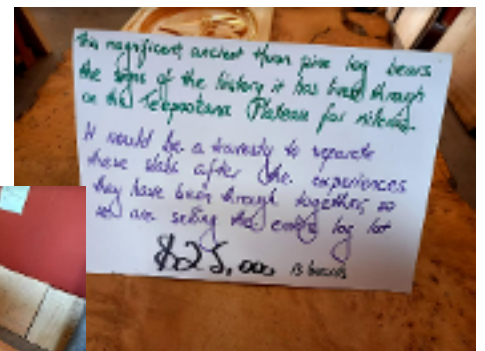 This magnificent ancient Huon pine log bears
the signs of the history it has lived through
on the Teepootana Plateau for millenia.
It would be a travesty to separate
these slabs after the experiences
they have been through together, so
we are selling the entire log lot
$25,000 13 boards